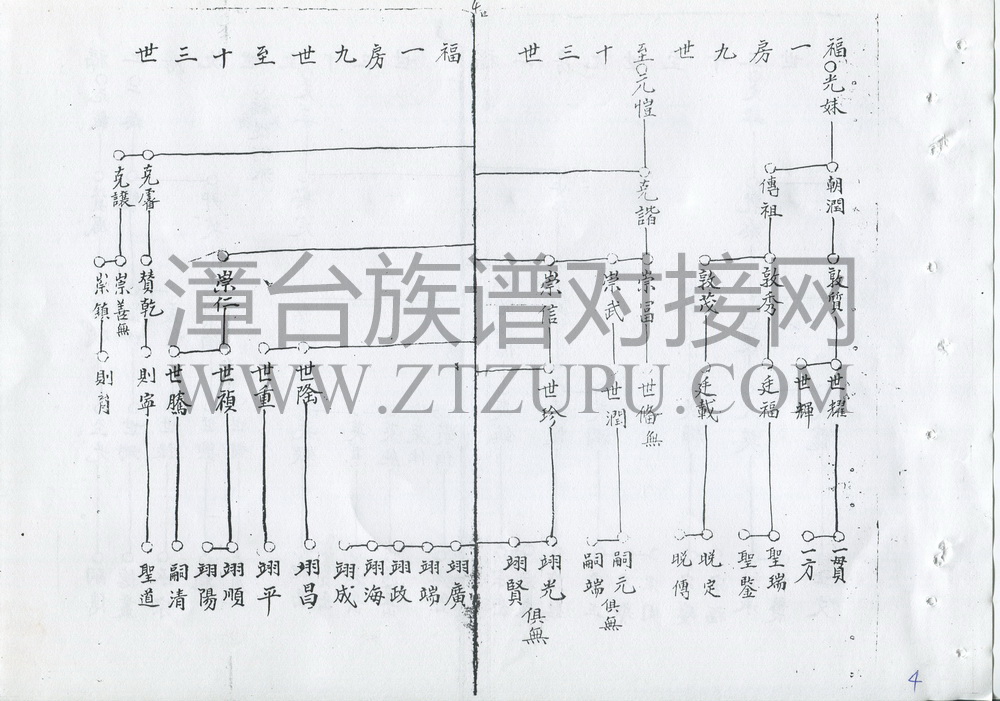 福一房九世至十三世
福一房九世至十三世
光妹
元愷
朝潤
傳祖
克諧
克讓
敦質
敦秀
敦茂
崇富
崇武
崇信
崇仁
贊乾
崇善無
崇鎮
世耀
世輝
廷福
廷載
世脩無
世潤
世珍
世隆
世重
世禎
世騰
則寧
一貫
一方
聖瑞
聖鑒
晚定
晚傳
嗣元
嗣端
俱無
翊光
翊賢
俱無
翊廣
翊端
翊政
翊海
翊成
翊昌
翊平
翊順
翊陽
嗣清
聖道
4
漳台族谱对接网
WWW.ZTZUPU.COM